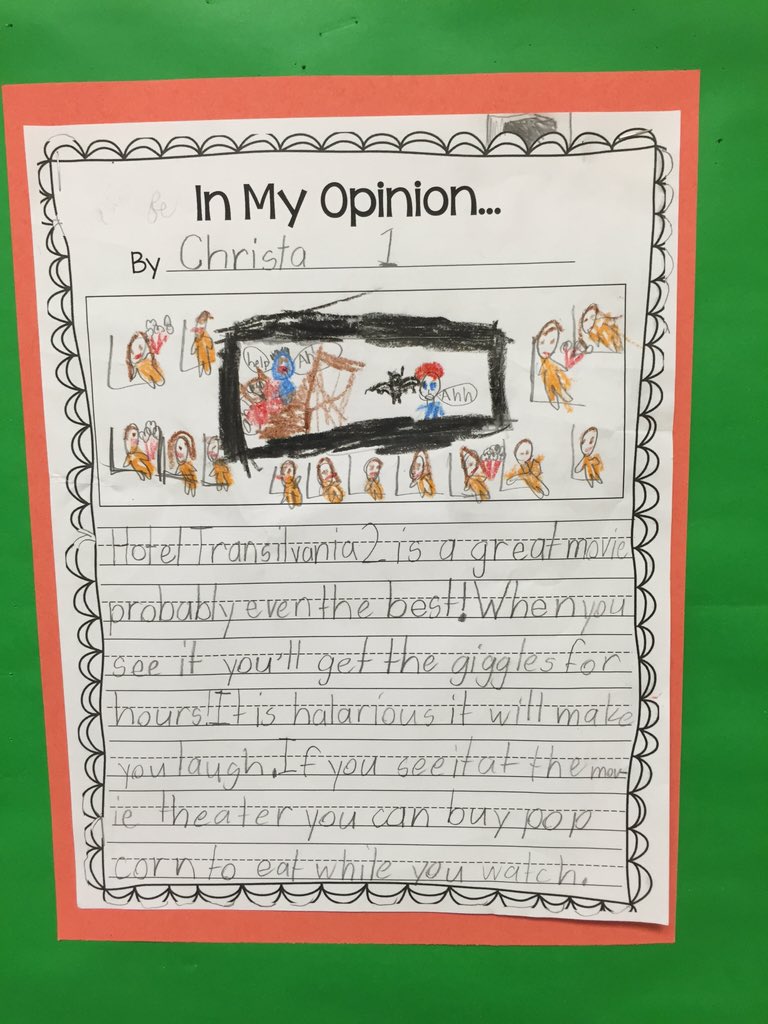 In My Opinion...
By Christa 1
help Ah
Ahh
Hotel Transilvania 2 is a great movie
probably even the best! When you
see it you'll get the giggles for
hours! It is halarious it will make
you laugh. If you see it at the mov-
ie theater you can buy pop
corn to eat while you watch.